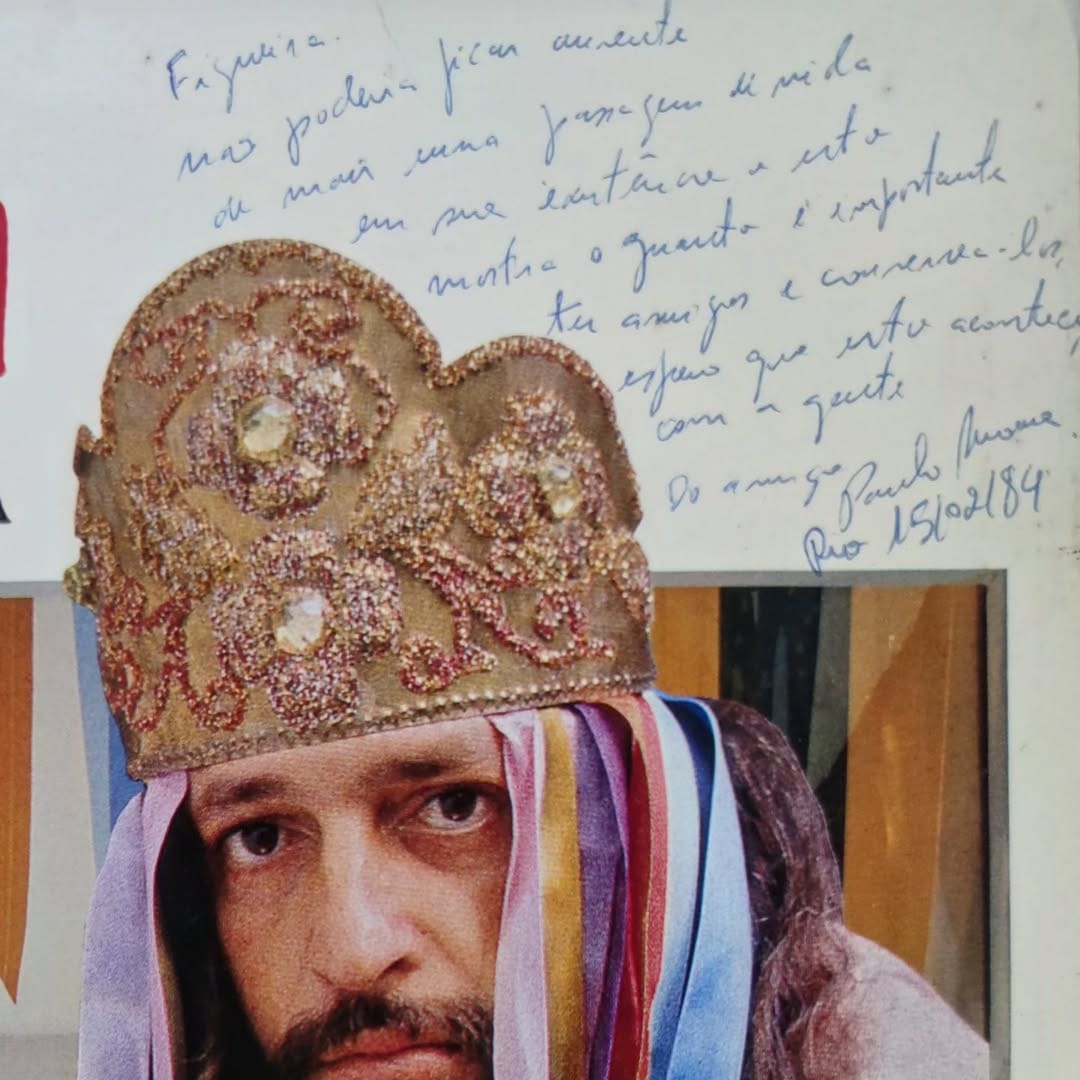 Figueira.
não poderia ficar ausente
de mais uma passagem de vida
em sua existência e isto
mostra o quanto é importante
ter amigos e conserva-los,
espero que isto aconteça
com a gente
Do amigo Paulo
Rio 15/02/84